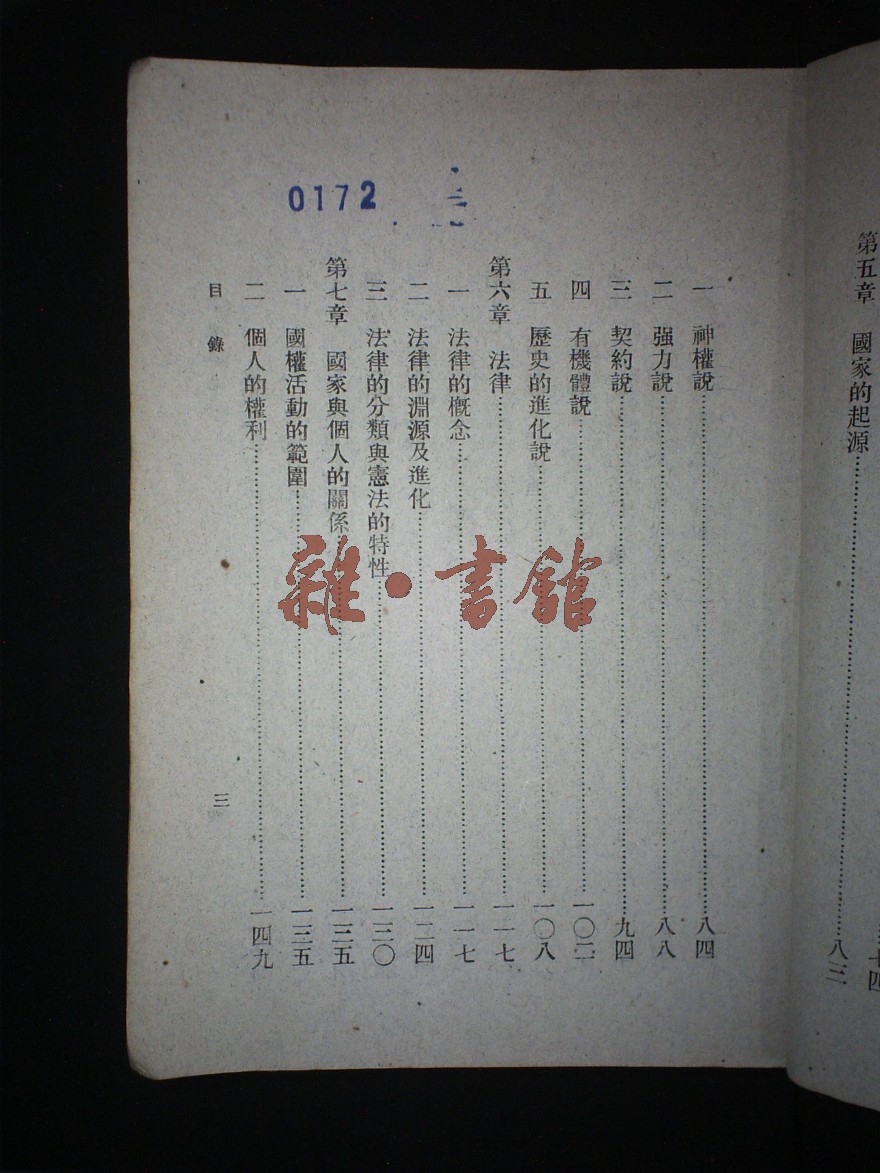 第五章　國家的起源……八三
0172
一　神權說……八四
二　强力說……八八
三　契約說……九四
四　有機體說……一〇二
五　歷史的進化說……一〇八
第六章　法律……一一七
一　法律的概念……一一七
二　法律的淵源及進化……一二四
三　法律的分類與憲法的特性……一三〇
第七章　國家與個人的關係……一三五
一　國權活動的範圍……一三五
二　個人的權利……一四九
目錄
三
雜·書館